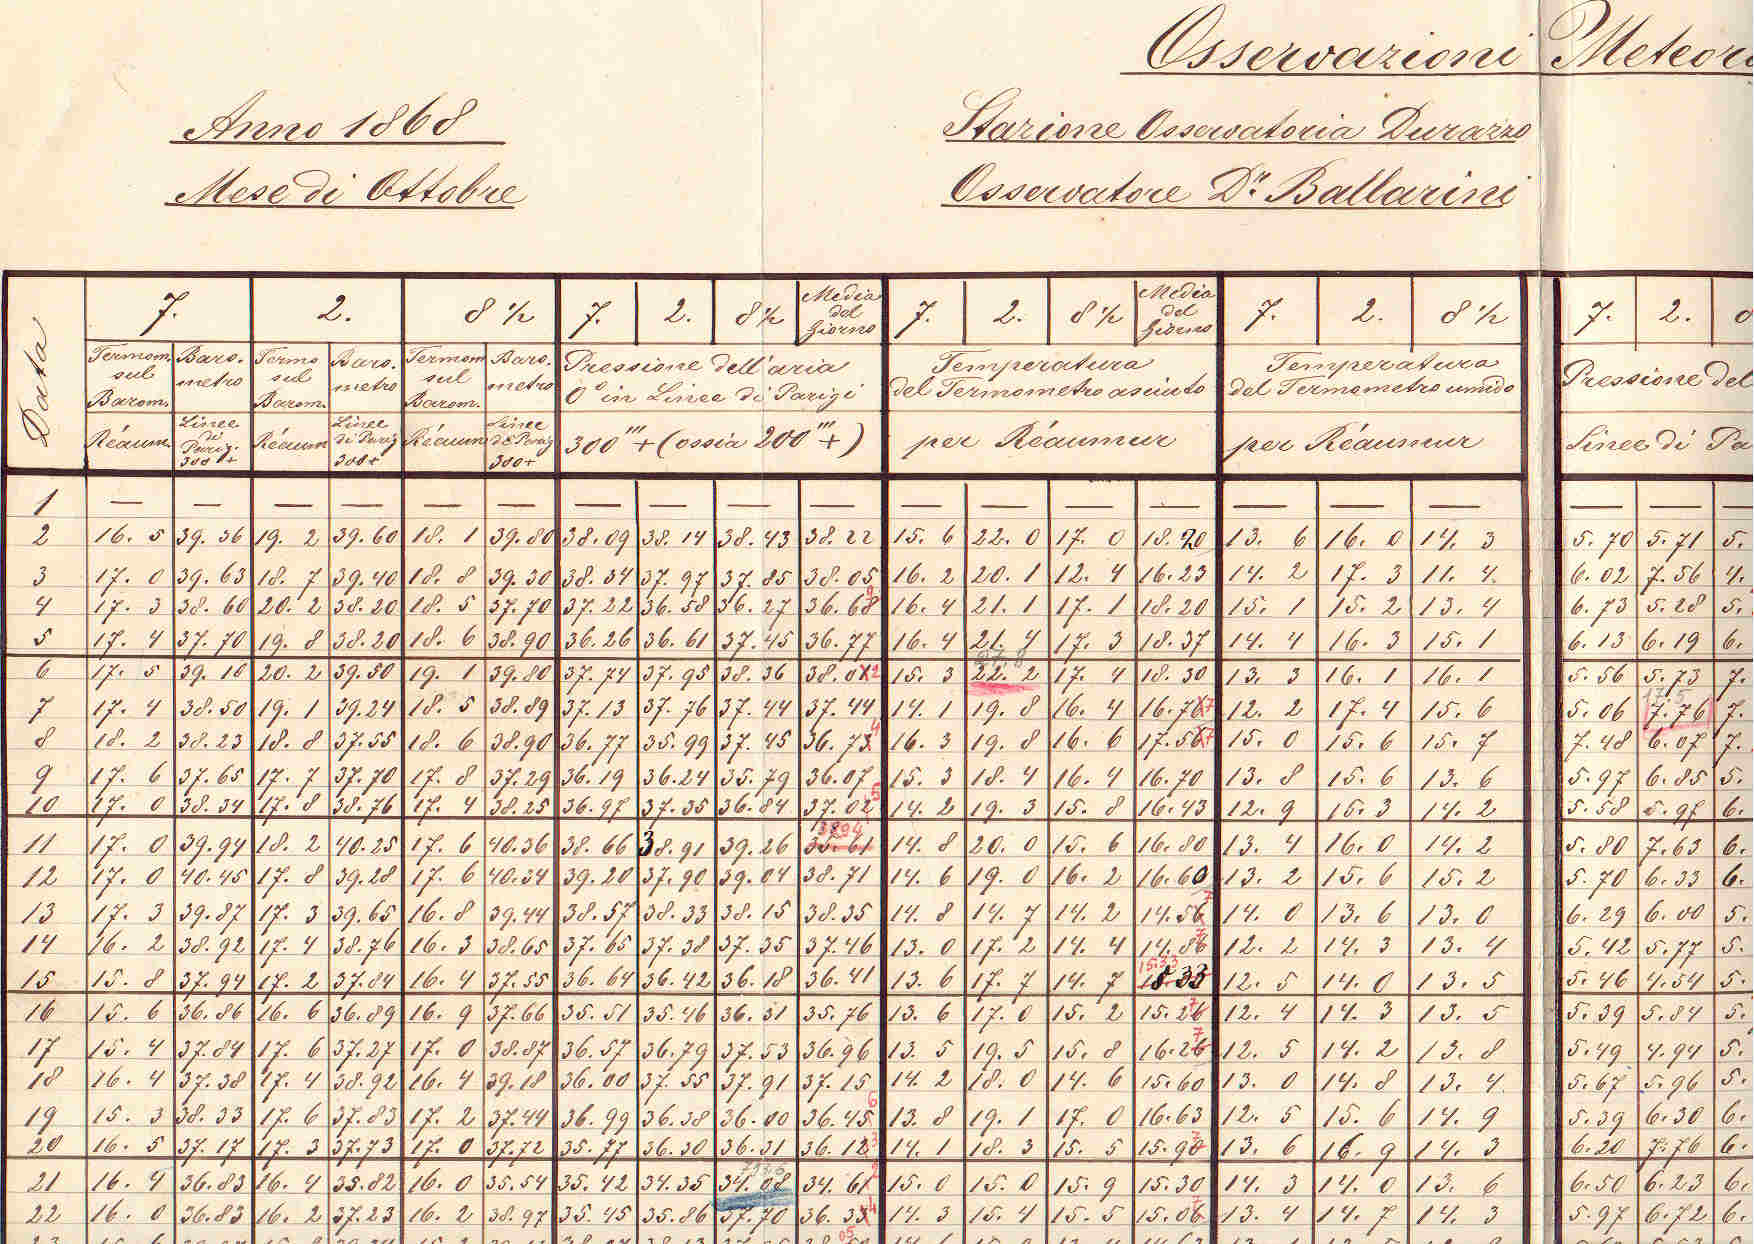 Osservazioni Meteoro
Anno 1868 Stazione Osservatoria Durazzo
Mese di Ottobre Osservatore Dr. Ballarini
Data 7. 2. 8 ½ 7. 2. 8 ½ Media del Giorno 7. 2. 8 ½ Media del Giorno 7. 2. 8 ½ 7. 2. 8
Termom. sul Barom. Barometro Termo sul Barom. Barometro Termom sul Barom. Barometro Pressione dell'aria 0° in Linee di Parigi Temperatura del Termometro asciuto Temperatura del Termometro umido Pressione del
Réaum. Linee di Parigi 300+ Réaum Linee di Parig 300+ Réaum Linee di Parig 300+ 300''' + (ossia 200''' +) per Réaumur per Réaumur Linee di Pa
1 — — — — — — — — — — — — — — — — — — — —
2 16.5 39.36 19.2 39.60 18.1 39.80 38.09 38.14 38.43 38.22 15.6 22.0 17.0 18.20 13.6 16.0 14.3 5.70 5.71 5.
3 17.0 39.63 18.7 39.40 18.8 39.30 38.34 37.97 37.85 38.05 16.2 20.1 12.4 16.23 14.2 17.3 11.4 6.02 7.56 4.
4 17.3 38.60 20.2 38.20 18.5 37.70 37.22 36.58 36.27 36.68 16.4 21.1 17.1 18.20 15.1 15.2 13.4 6.73 5.28 5.
5 17.4 37.70 19.8 38.20 18.6 38.90 36.26 36.61 37.45 36.77 16.4 21.4 17.3 18.37 14.4 16.3 15.1 6.13 6.19 6.
6 17.5 39.18 20.2 39.50 19.1 39.80 37.74 37.95 38.36 38.0 2 15.3 22.2 17.4 18.30 13.3 16.1 16.1 5.56 5.73 7.
7 17.4 38.50 19.1 39.24 18.5 38.89 37.13 37.76 37.44 37.44 14.1 19.8 16.4 16.7 7 12.2 17.4 15.6 5.06 7.76 7.
8 18.2 38.23 18.8 37.55 18.6 38.90 36.77 35.99 37.45 36.73 4 16.3 19.8 16.6 17.5 7 15.0 15.6 15.7 7.48 6.07 7.
9 17.6 37.65 17.7 37.70 17.8 37.29 36.19 36.24 35.79 36.07 15.3 18.4 16.4 16.70 13.8 15.6 13.6 5.97 6.85 5.
10 17.0 38.34 17.8 38.76 17.4 38.25 36.97 37.35 36.84 37.02 5 14.2 19.3 15.8 16.43 12.9 15.3 14.2 5.58 5.97 6.
11 17.0 39.94 18.2 40.25 17.6 40.36 38.66 38.91 39.26 3894 14.8 20.0 15.6 16.80 13.4 16.0 14.2 5.80 7.63 6.
12 17.0 40.45 17.8 39.28 17.6 40.34 39.20 37.90 39.04 38.71 14.6 19.0 16.2 16.60 13.2 15.6 15.2 5.70 6.33 6.
13 17.3 39.87 17.3 39.65 16.8 39.44 38.57 38.33 38.15 38.35 14.8 14.7 14.2 14.56 7 14.0 13.6 13.0 6.29 6.00 5.
14 16.2 38.92 17.4 38.76 16.3 38.65 37.65 37.38 37.35 37.46 13.0 17.2 14.4 14.86 7 12.2 14.3 13.4 5.42 5.77 5.
15 15.8 37.94 17.2 37.84 16.4 37.55 36.64 36.42 36.18 36.41 13.6 17.7 14.7 15.33 12.5 14.0 13.5 5.46 4.54 5.
16 15.6 36.86 16.6 36.89 16.9 37.66 35.51 35.46 36.31 35.76 13.6 17.0 15.2 15.26 7 12.4 14.3 13.5 5.39 5.84 5.
17 15.4 37.84 17.6 37.27 17.0 38.87 36.57 36.79 37.53 36.96 13.5 19.5 15.8 16.26 7 12.5 14.2 13.8 5.49 4.94 5.
18 16.4 37.38 17.4 38.92 16.4 39.18 36.00 37.55 37.91 37.15 14.2 18.0 14.6 15.60 13.0 14.8 13.4 5.67 5.96 5.
19 15.3 38.33 17.6 37.83 17.2 37.44 36.99 36.38 36.00 36.45 6 13.8 19.1 17.0 16.63 12.5 15.6 14.9 5.39 6.30 6.
20 16.5 37.17 17.3 37.73 17.0 37.72 35.77 36.30 36.31 36.12 3 14.1 18.3 15.5 15.9 13.6 16.9 14.3 6.20 7.76 6.
21 16.4 36.83 16.4 35.82 16.0 35.54 35.42 34.35 34.08 34.61 2 15.0 15.0 15.9 15.30 14.3 14.0 13.6 6.50 6.23 6.
22 16.0 36.83 16.2 37.23 16.2 38.97 35.45 35.86 37.70 36.3 4 14.3 15.4 15.5 15.06 7 13.4 14.7 14.3 5.97 6.72 6.